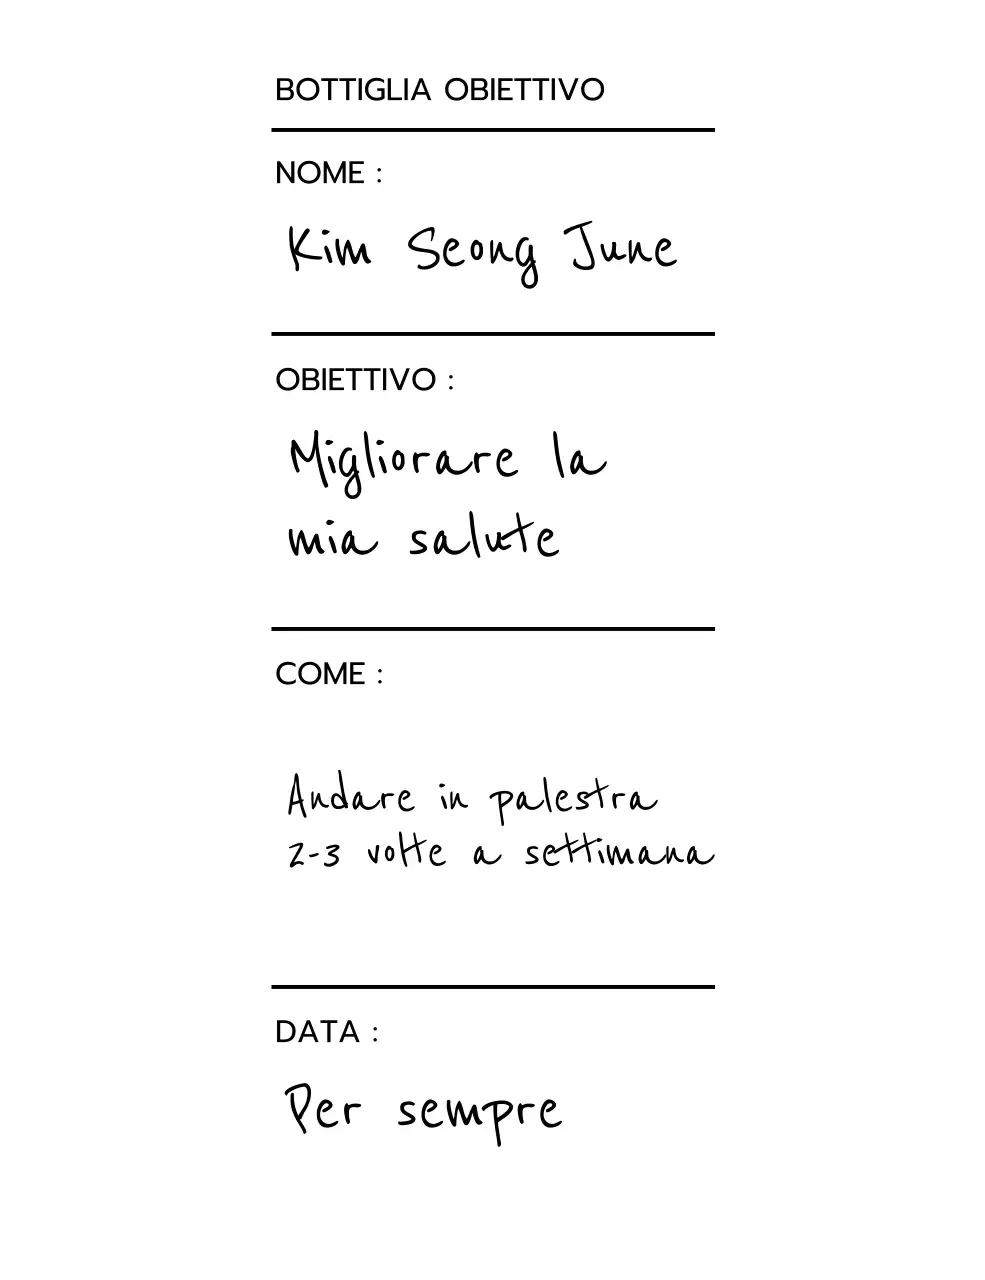 BOTTIGLIA OBIETTIVO
NOME :
Kim Seong June
OBIETTIVO :
Migliorare la
mia salute
COME :
Andare in palestra
2-3 volte a settimana
DATA :
Per sempre